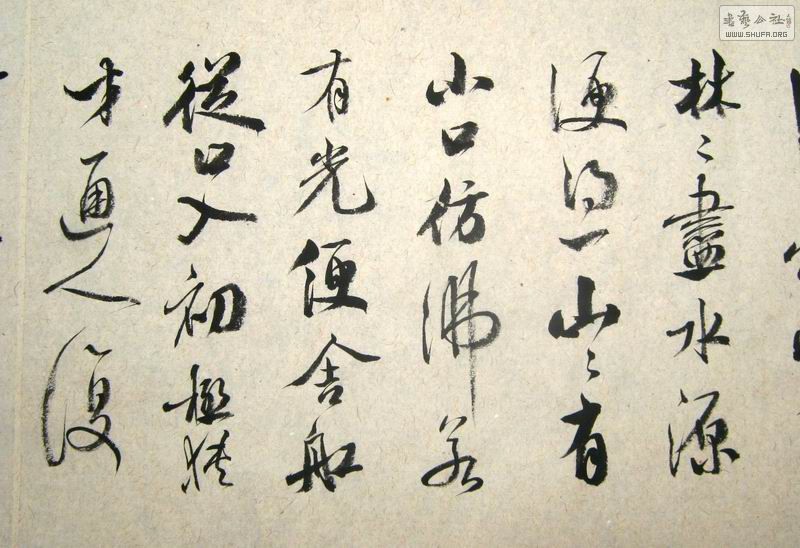 林〻盡水源
便得一山〻有
小口仿沸若
有光便舍船
從口入初極狹
才通人復
書藝公社
WWW.SHUFA.ORG